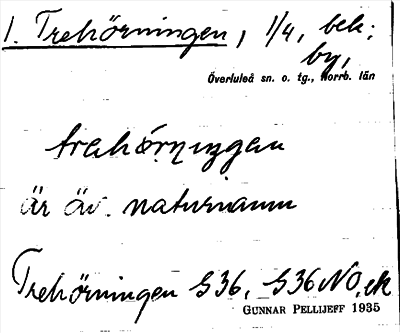 1. Trehörningen, 1/4, bek;
by,
Överluleå sn. o. tg., Norrb. län
trehörningen
är äv. naturnamn
Trehörningen S36, S36NO, ek
GUNNAR PELLIJEFF 1935